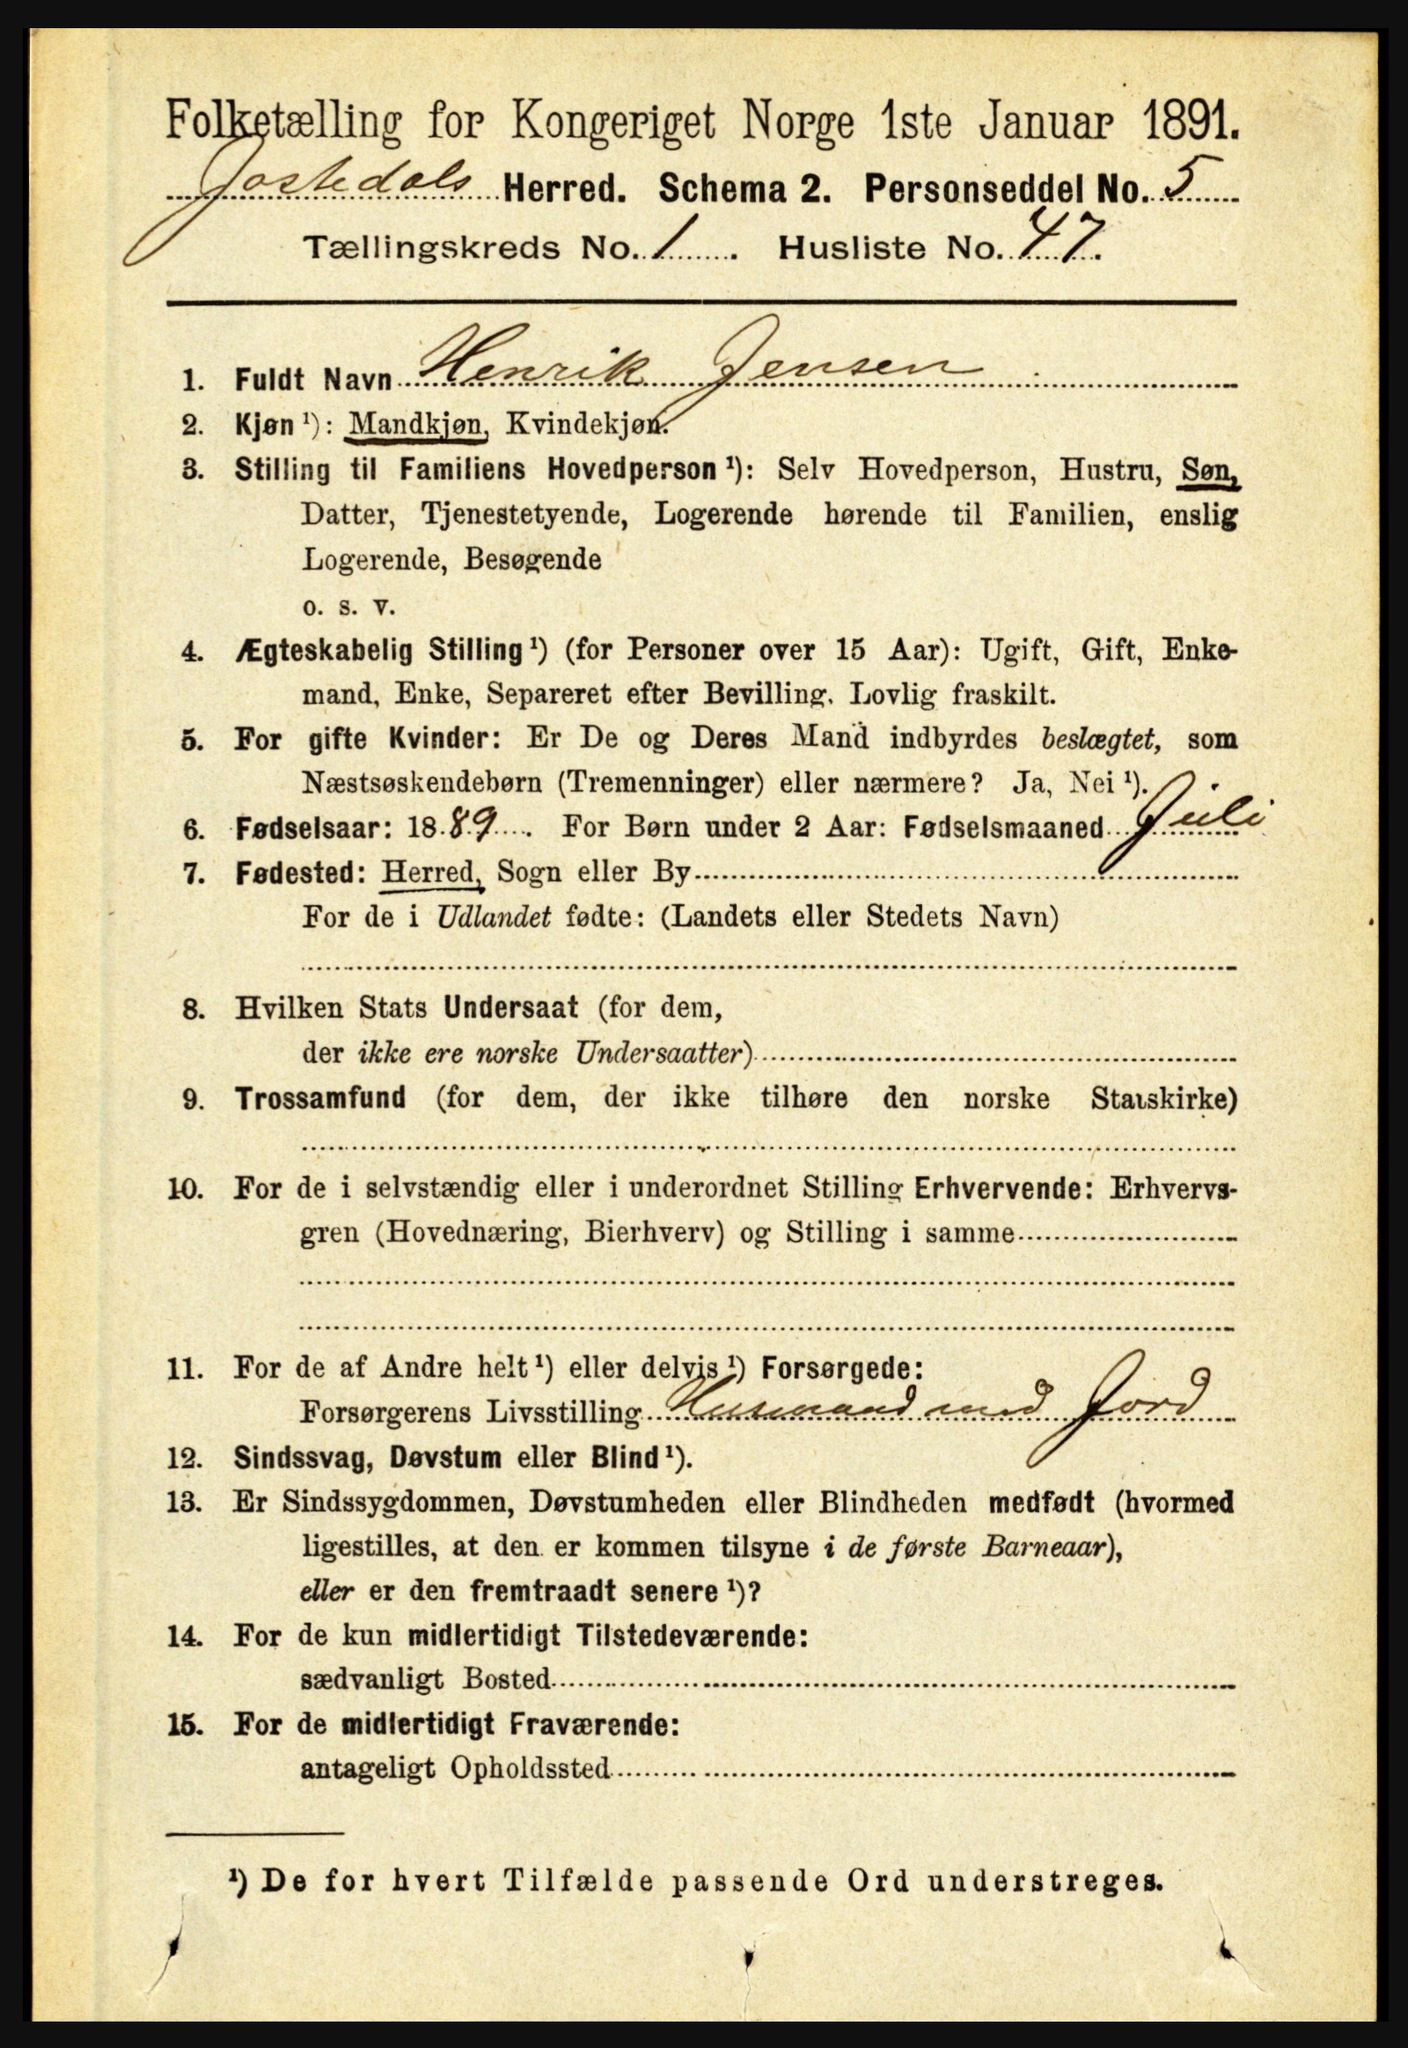 Folketælling for Kongeriget Norge 1ste Januar 1891.
Jostedals Herred. Schema 2. Personseddel No. 5
Tællingskreds No. 1. Husliste No. 47.
1. Fuldt Navn Henrik Jensen
2. Kjøn ¹): Mandkjøn, Kvindekjøn.
3. Stilling til Familiens Hovedperson ¹): Selv Hovedperson, Hustru, Søn,
Datter, Tjenestetyende, Logerende hørende til Familien, enslig
Logerende, Besøgende
o. s. v.
4. Ægteskabelig Stilling ¹) (for Personer over 15 Aar): Ugift, Gift, Enke-
mand, Enke, Separeret efter Bevilling. Lovlig fraskilt.
5. For gifte Kvinder: Er De og Deres Mand indbyrdes beslægtet, som
Næstsøskendebørn (Tremenninger) eller nærmere? Ja, Nei ¹).
6. Fødselsaar: 1889. For Børn under 2 Aar: Fødselsmaaned Juli
7. Fødested: Herred, Sogn eller By
For de i Udlandet fødte: (Landets eller Stedets Navn)
8. Hvilken Stats Undersaat (for dem,
der ikke ere norske Undersaatter)
9. Trossamfund (for dem, der ikke tilhøre den norske Statskirke)
10. For de i selvstændig eller i underordnet Stilling Erhvervende: Erhvervs-
gren (Hovednæring, Bierhverv) og Stilling i samme
11. For de af Andre helt ¹) eller delvis ¹) Forsørgede:
Forsørgerens Livsstilling Husmand med Jord
12. Sindssvag, Døvstum eller Blind ¹).
13. Er Sindssygdommen, Døvstumheden eller Blindheden medfødt (hvormed
ligestilles, at den er kommen tilsyne i de første Barneaar),
eller er den fremtraadt senere ¹)?
14. For de kun midlertidigt Tilstedeværende:
sædvanligt Bosted
15. For de midlertidigt Fraværende:
antageligt Opholdssted
¹) De for hvert Tilfælde passende Ord understreges.